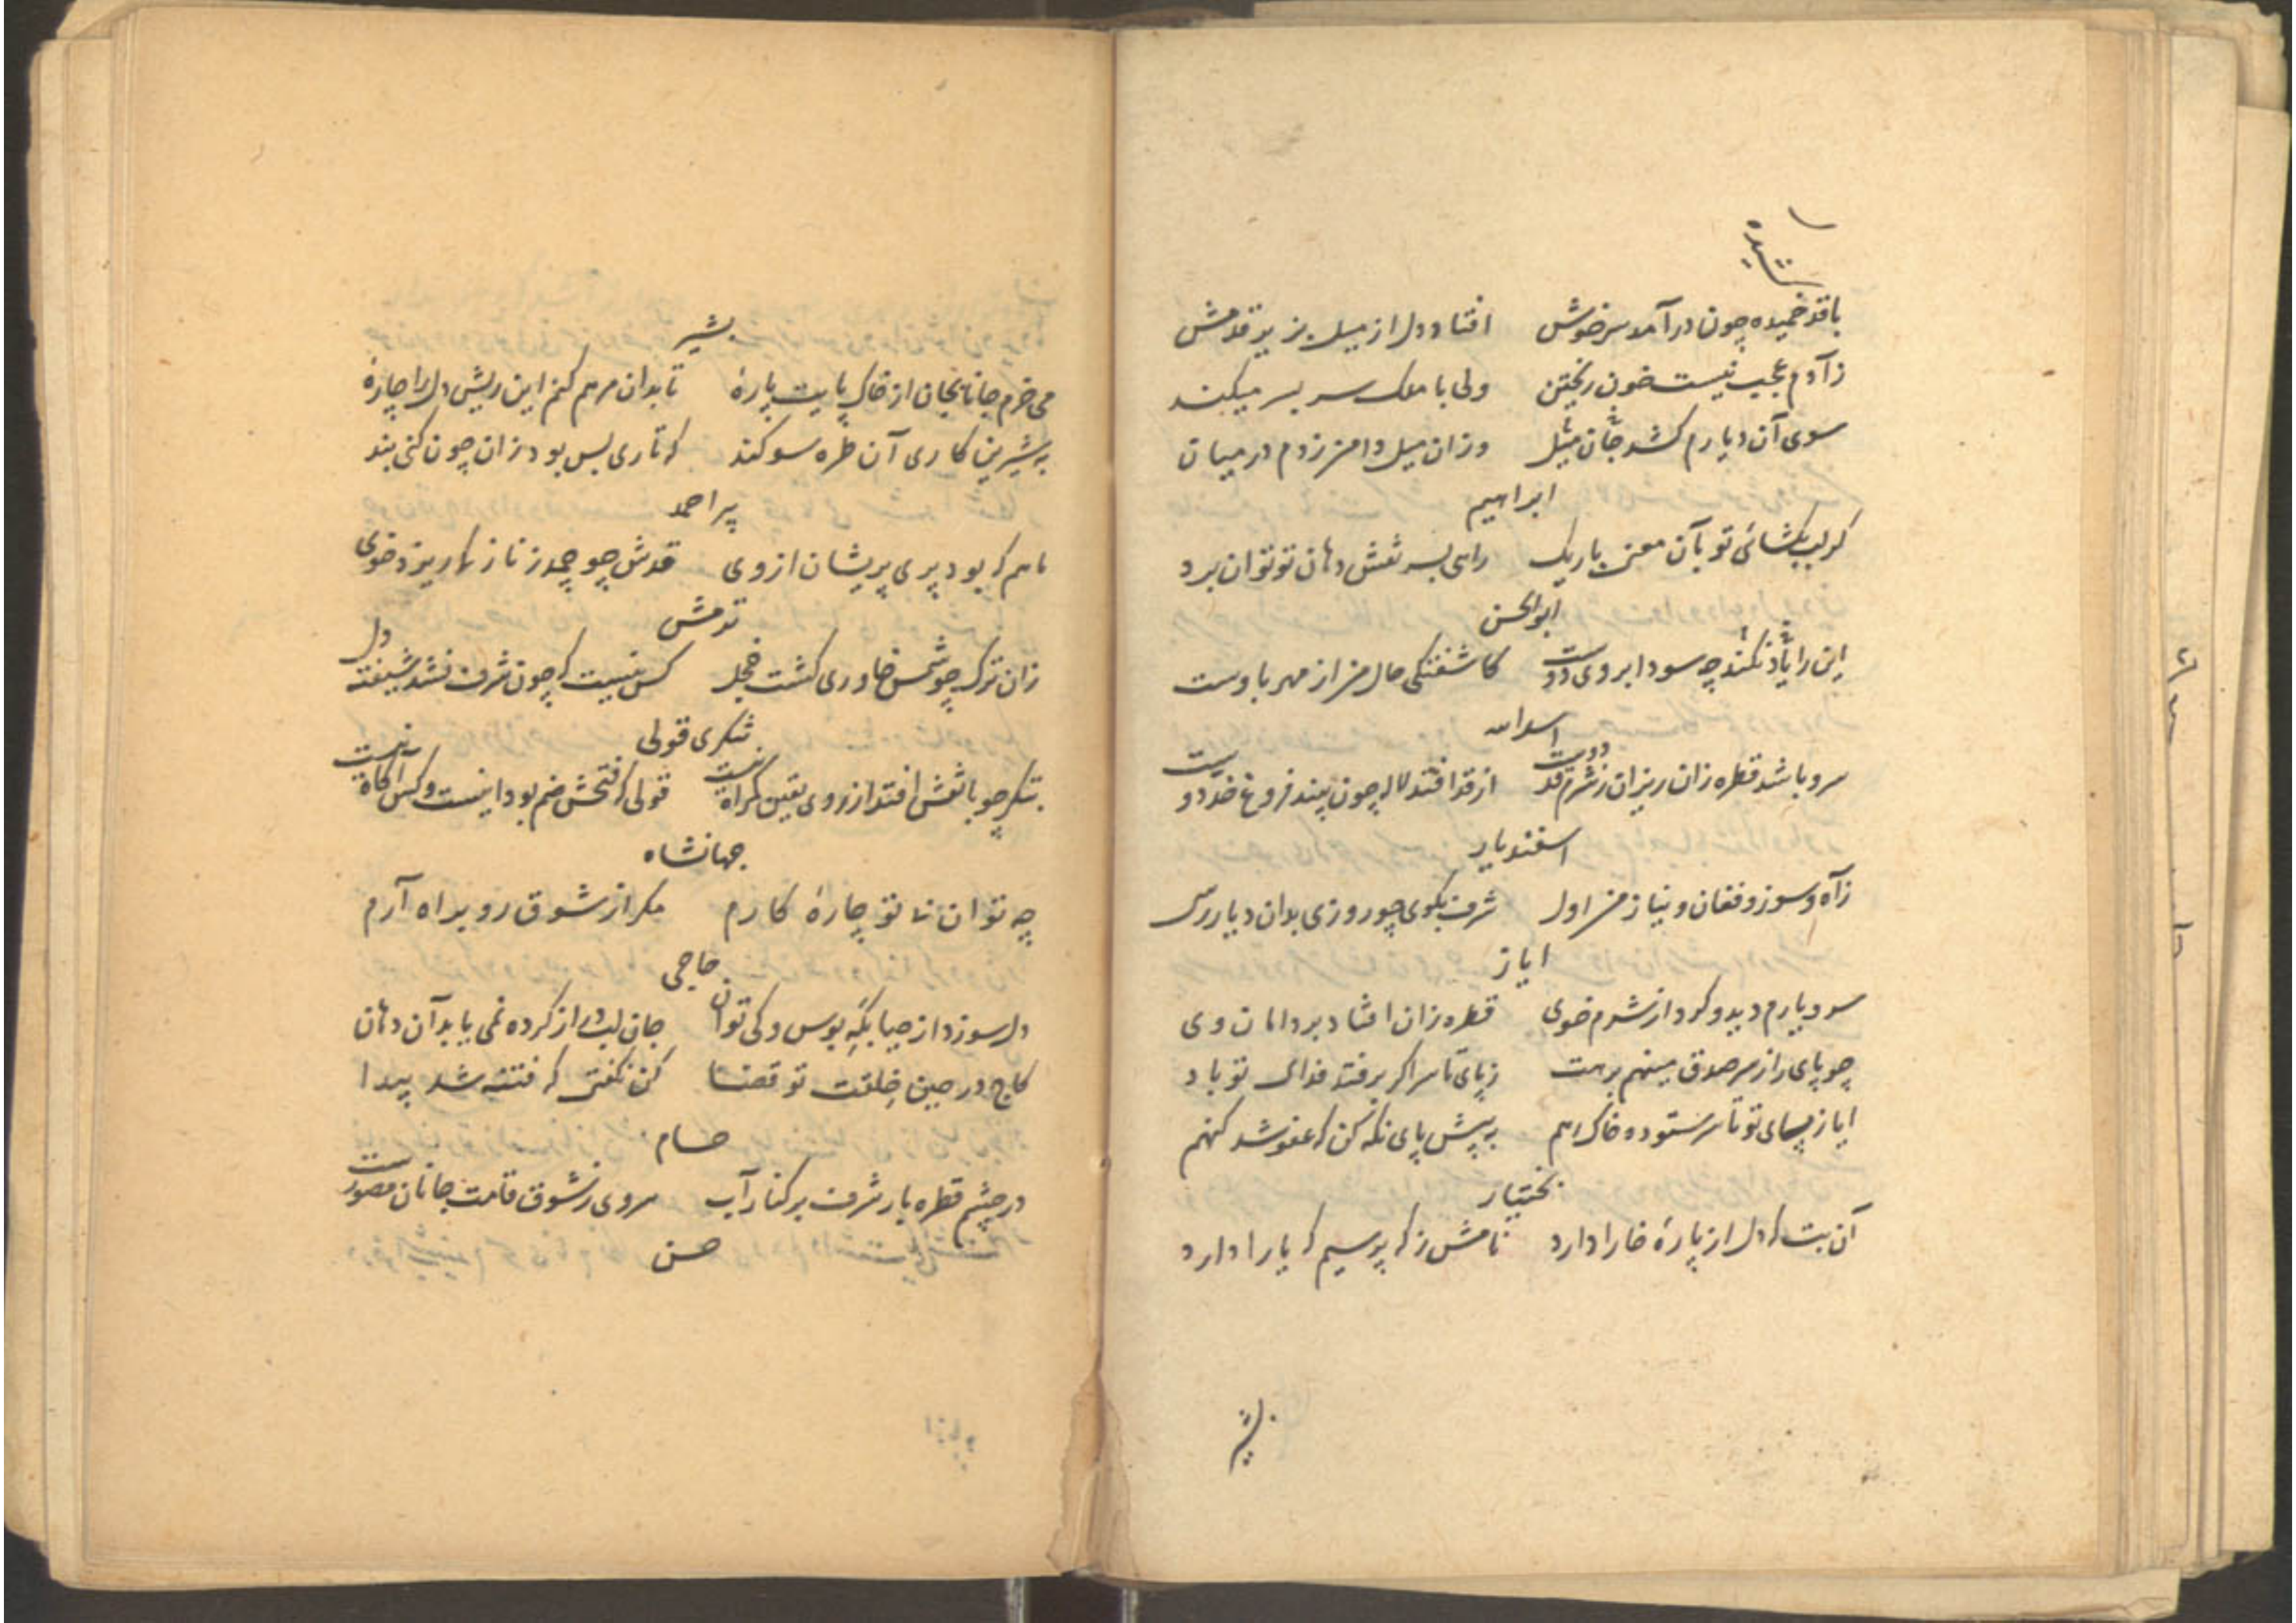 با قد خمیده چون درآمد سرخوش افتاد دل از میل بزیر قدمش
زآدم عجب نیست خون ریختن ولی با ملک سر بسر میکند
سوی آن دیارم کشد جان مثل وزان میل دامن زدم در میان
ابراهیم
کر لب بکشائی تو بآن معنی باریک راهی بسر نقش دهان تو توان برد
ابوالحسن
این را یاد نکند چه سود ابروی دوست کاشفتکی حال من از مهر باوست
اسدالله
سرو باشد قطره زان ریزان زشرم قد دوست از قد افتد لاله چون بیند فروغ خد دوست
اسفندیار
زآه و سوز و فغان و نیاز من اول شرف بکوی چو روزی بدان دیار رسی
ایاز
سرو یارم دید و کرد از شرم خوی قطره زان افتاد بر دامان وی
چو پای را ز سر صدق مینهم برهت ز پای تا سر اکر برفتد فدای تو باد
ایاز پسای تو تا سر ستوده خاک رهم به پیش پای نکه کن که عفو شد کنهم
بختیار
آن بت که دل از پارهٔ خارا دارد نامش ز که پرسیم که یارا دارد
بشیر
بشیر
می خرم جانا بجان از خاک پایت پارهٔ تا بدان مرهم کنم این ریش دل را چارهٔ
به شیرین کاری آن طره سوکند که تاری بس بود زان چون کنی بند
پیر احمد
ماهم که بود پری پریشان از وی قدش چو چمد ز ناز ریزد خوی
تدمش
زان ترک چو شمس خاوری کشت خجل کس نیست که چون شرف نشد شیفته دل
شکری قولی
شکر چو با نقش افتد از روی یقین کراه نیست قولی که فتحش ضم بود اینست و کس آکاه نیست
جهانشاه
چه توان نه تو چارهٔ کارم مکر از شوق رو براه آرم
حاجی
دل سوزد از حیا بکه بوس و کی توان جان لب دراز کرده نمی یابد آن دهان
کاج در حین خلقت تو قضا کن نکفتی که فتنه شد پیدا
حسام
در چشم قطره بار شرف بر کنار آب سروی ز شوق قامت جانان مصورست
حسن